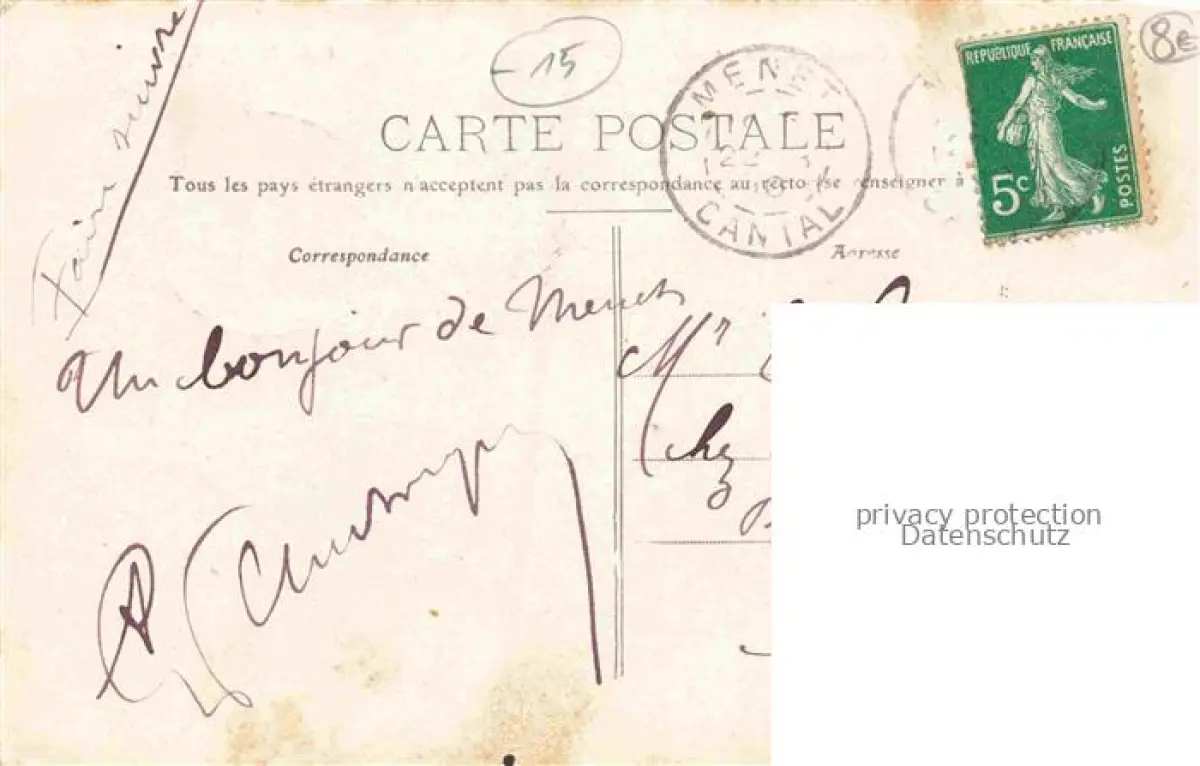 Faire suivre
- 15
8€
CARTE POSTALE
MENET
CANTAL
REPUBLIQUE FRANÇAISE
5c
POSTES
Tous les pays étrangers n'acceptent pas la correspondance au recto (se renseigner à
Correspondance
Adresse
Un bonjour de Menet
Mr
Chez
privacy protection
Datenschutz